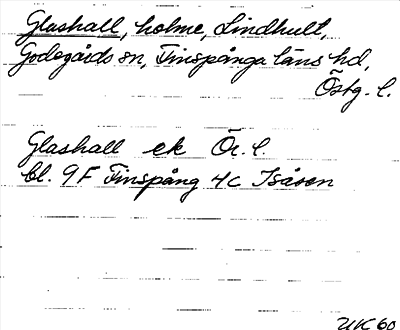 Glashall, holme, Lindhult,
Godegårds sn, Finspånga läns hd,
Östg. l.
Glashall ek Ör. l.
bl. 9F Finspång 4c Isåsen
UK 60